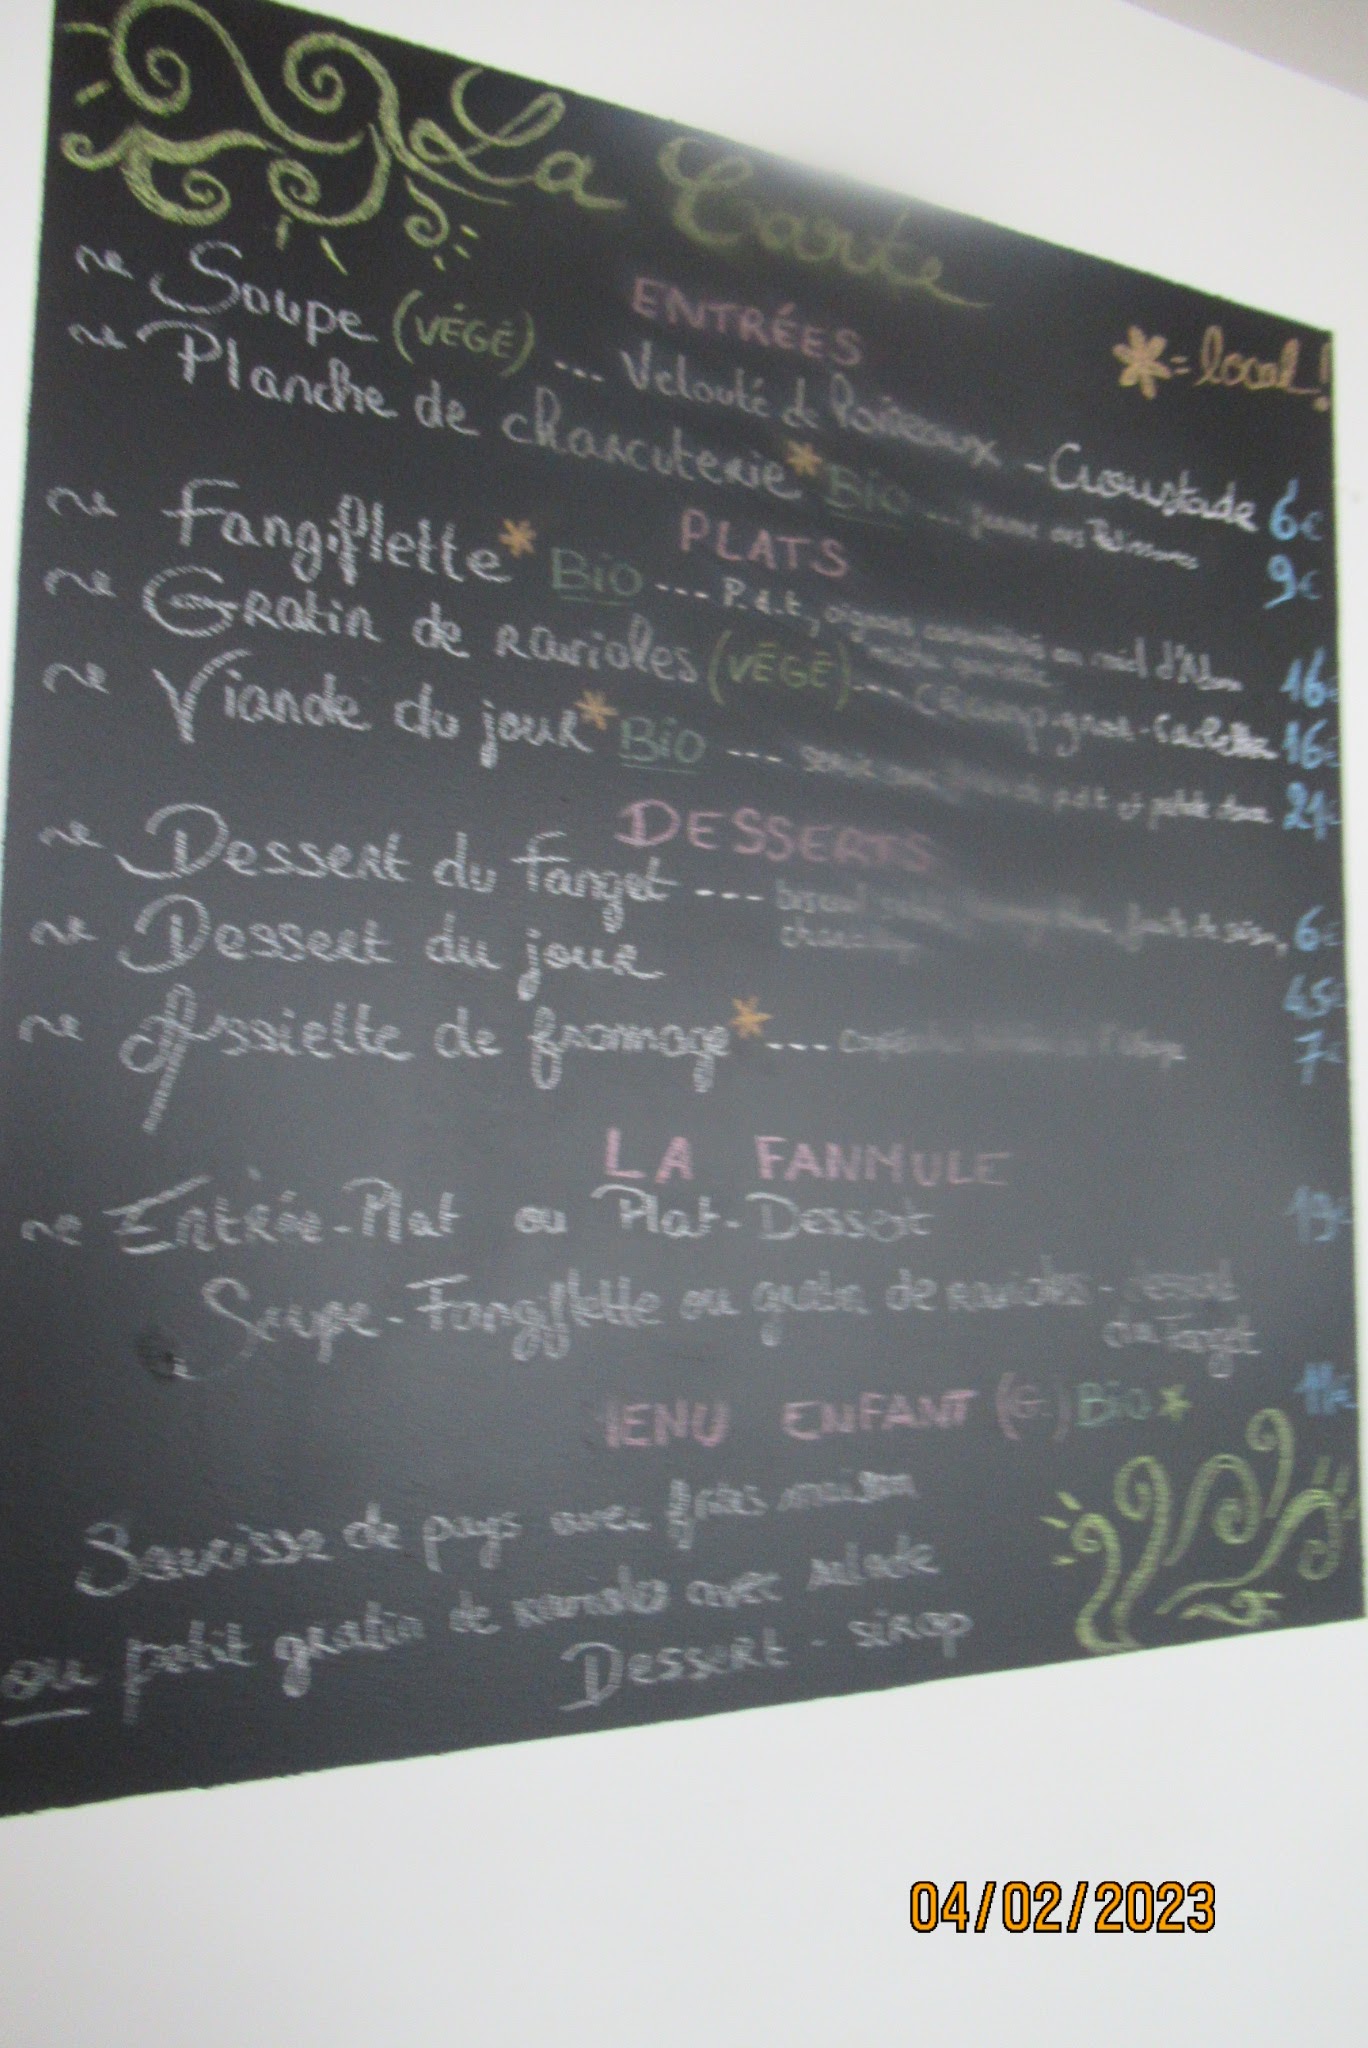 La Carte
ENTRÉES
* = local !
~ Soupe (VÉGÉ) ... Velouté de Poireaux - Croustade 6€
~ Planche de charcuterie* Bio ... 9€
PLATS
~ Fangiflette* Bio --- P.d.t, oignons au miel d' 16€
~ Gratin de ravioles (VÉGÉ)... Champignon - 16€
~ Viande du jour* Bio --- p.d.t 21€
DESSERTS
~ Dessert du Fanget --- fruits de saison, 6€
~ Dessert du jour
~ Assiette de fromage* --- 7€
LA FANMULE
~ Entrée-Plat ou Plat-Dessert 19€
Soupe-Fangiflette ou gratin de ravioles - dessert
du Fanget
MENU ENFANT Bio* 11€
Saucisse de pays avec frites maison
ou petit gratin de ravioles avec salade
Dessert - sirop
04/02/2023